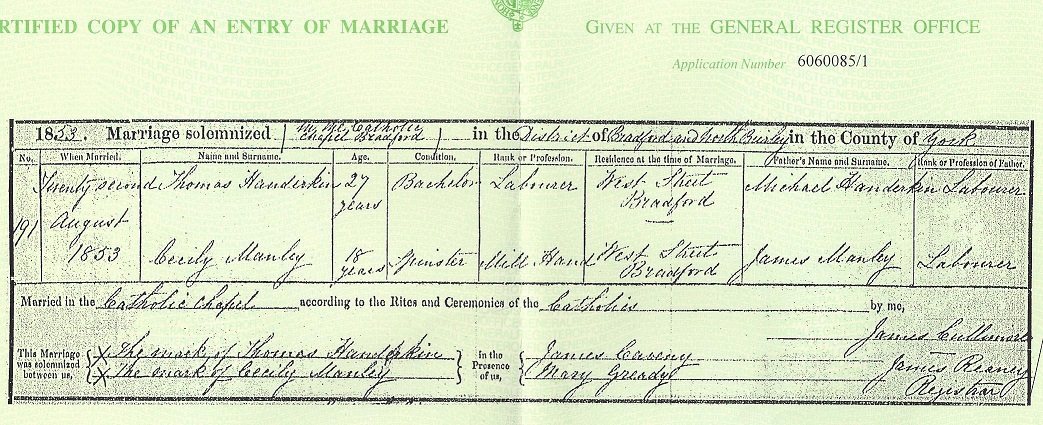 RTIFIED COPY OF AN ENTRY OF MARRIAGE GIVEN AT THE GENERAL REGISTER OFFICE
Application Number 6060085/1
1853. Marriage solemnized Catholic Chapel Bradford in the District of Bradford and North Bierley in the County of York
No. When Married. Name and Surname. Age. Condition. Rank or Profession. Residence at the time of Marriage. Father's Name and Surname. Rank or Profession of Father.
191 Twenty second August 1853
Thomas Handerkin 27 years Bachelor Labourer West Street Bradford Michael Handerkin Labourer
Cecily Manley 18 years Spinster Mill Hand West Street Bradford James Manley Labourer
Married in the Catholic Chapel according to the Rites and Ceremonies of the Catholics by me,
James Cullimore
This Marriage was solemnized between us, X The mark of Thomas Handerkin
X The mark of Cecily Manley
in the Presence of us, James Caveny
Mary Gready
James Reaney
Registrar